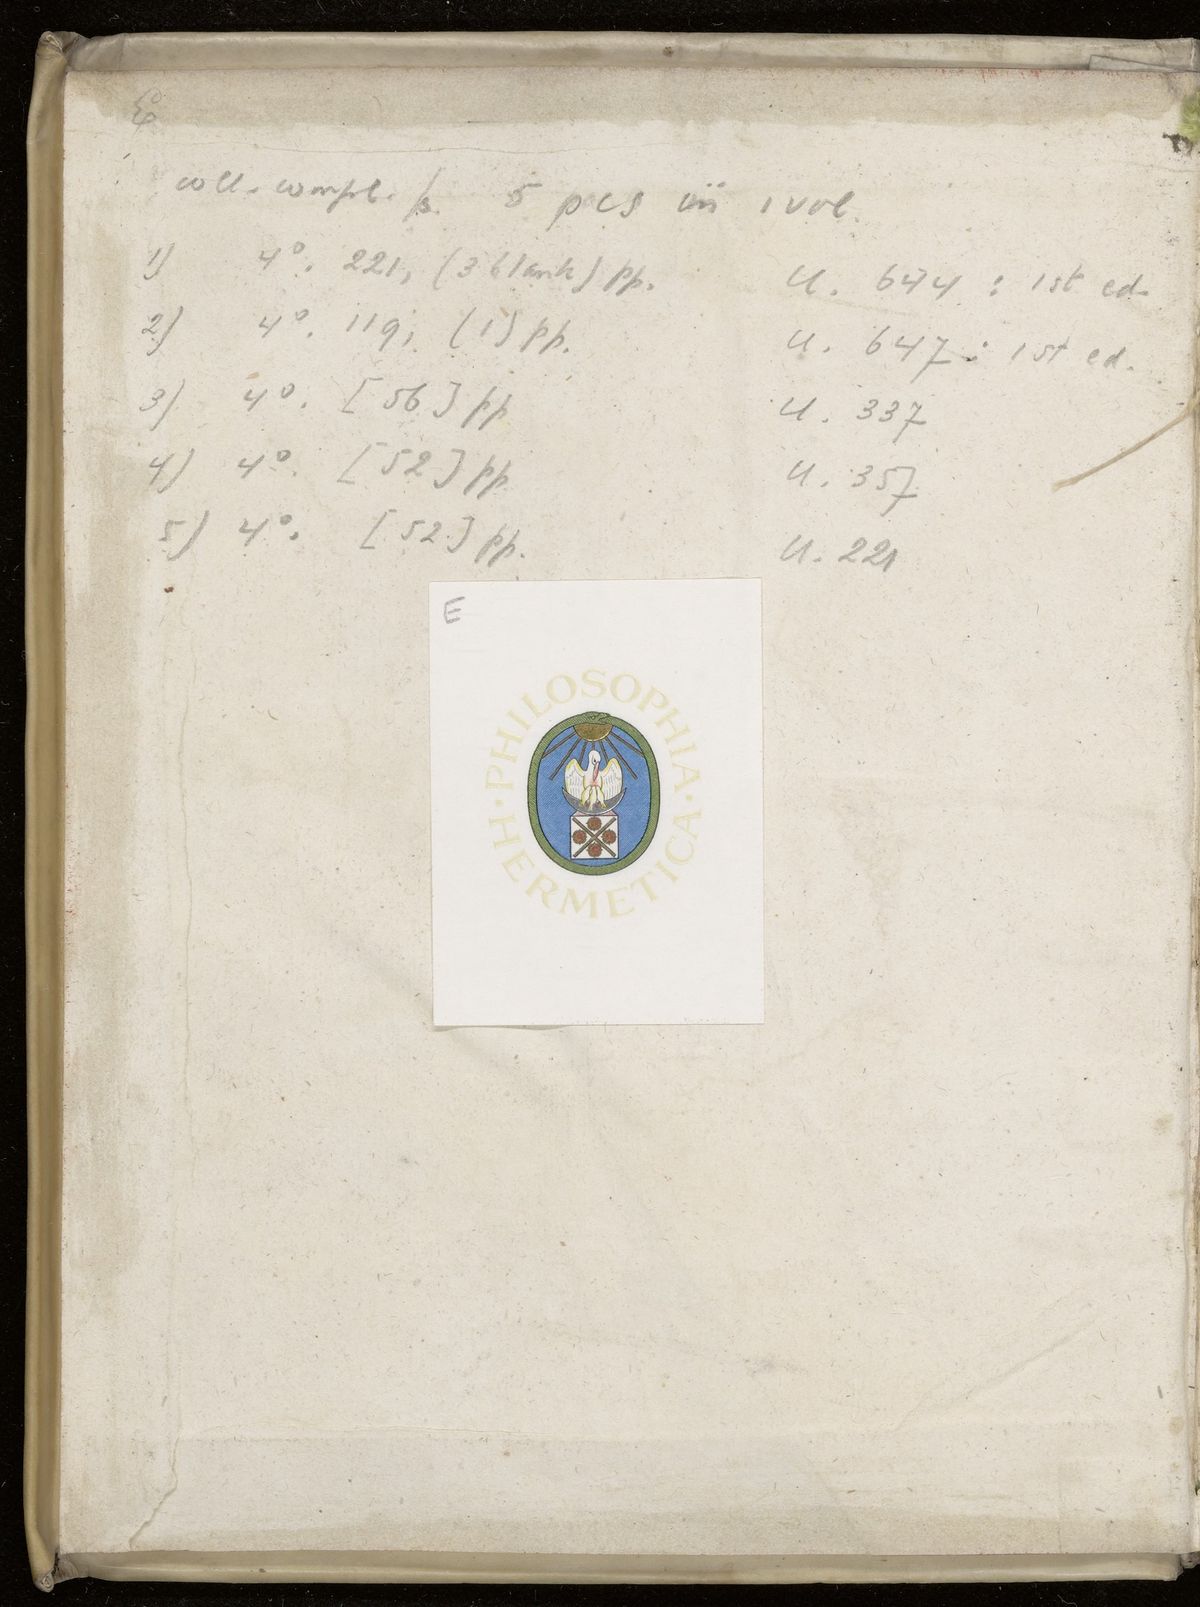 coll. compl. p. 5 pcs in 1 vol.
1) 4°. 221, (3 blank) pp. U. 644 : 1st ed.
2) 4°. 119, (1) pp. U. 647 : 1st ed.
3) 4°. [56] pp U. 337
4) 4°. [52] pp U. 357
5) 4°. [52] pp. U. 221
E
PHILOSOPHIA · HERMETICA ·